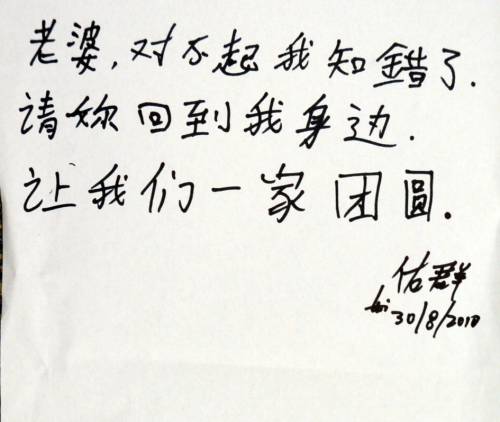 老婆,对不起我知錯了.
请妳回到我身边.
让我们一家团圆.
佑群
30/8/2010